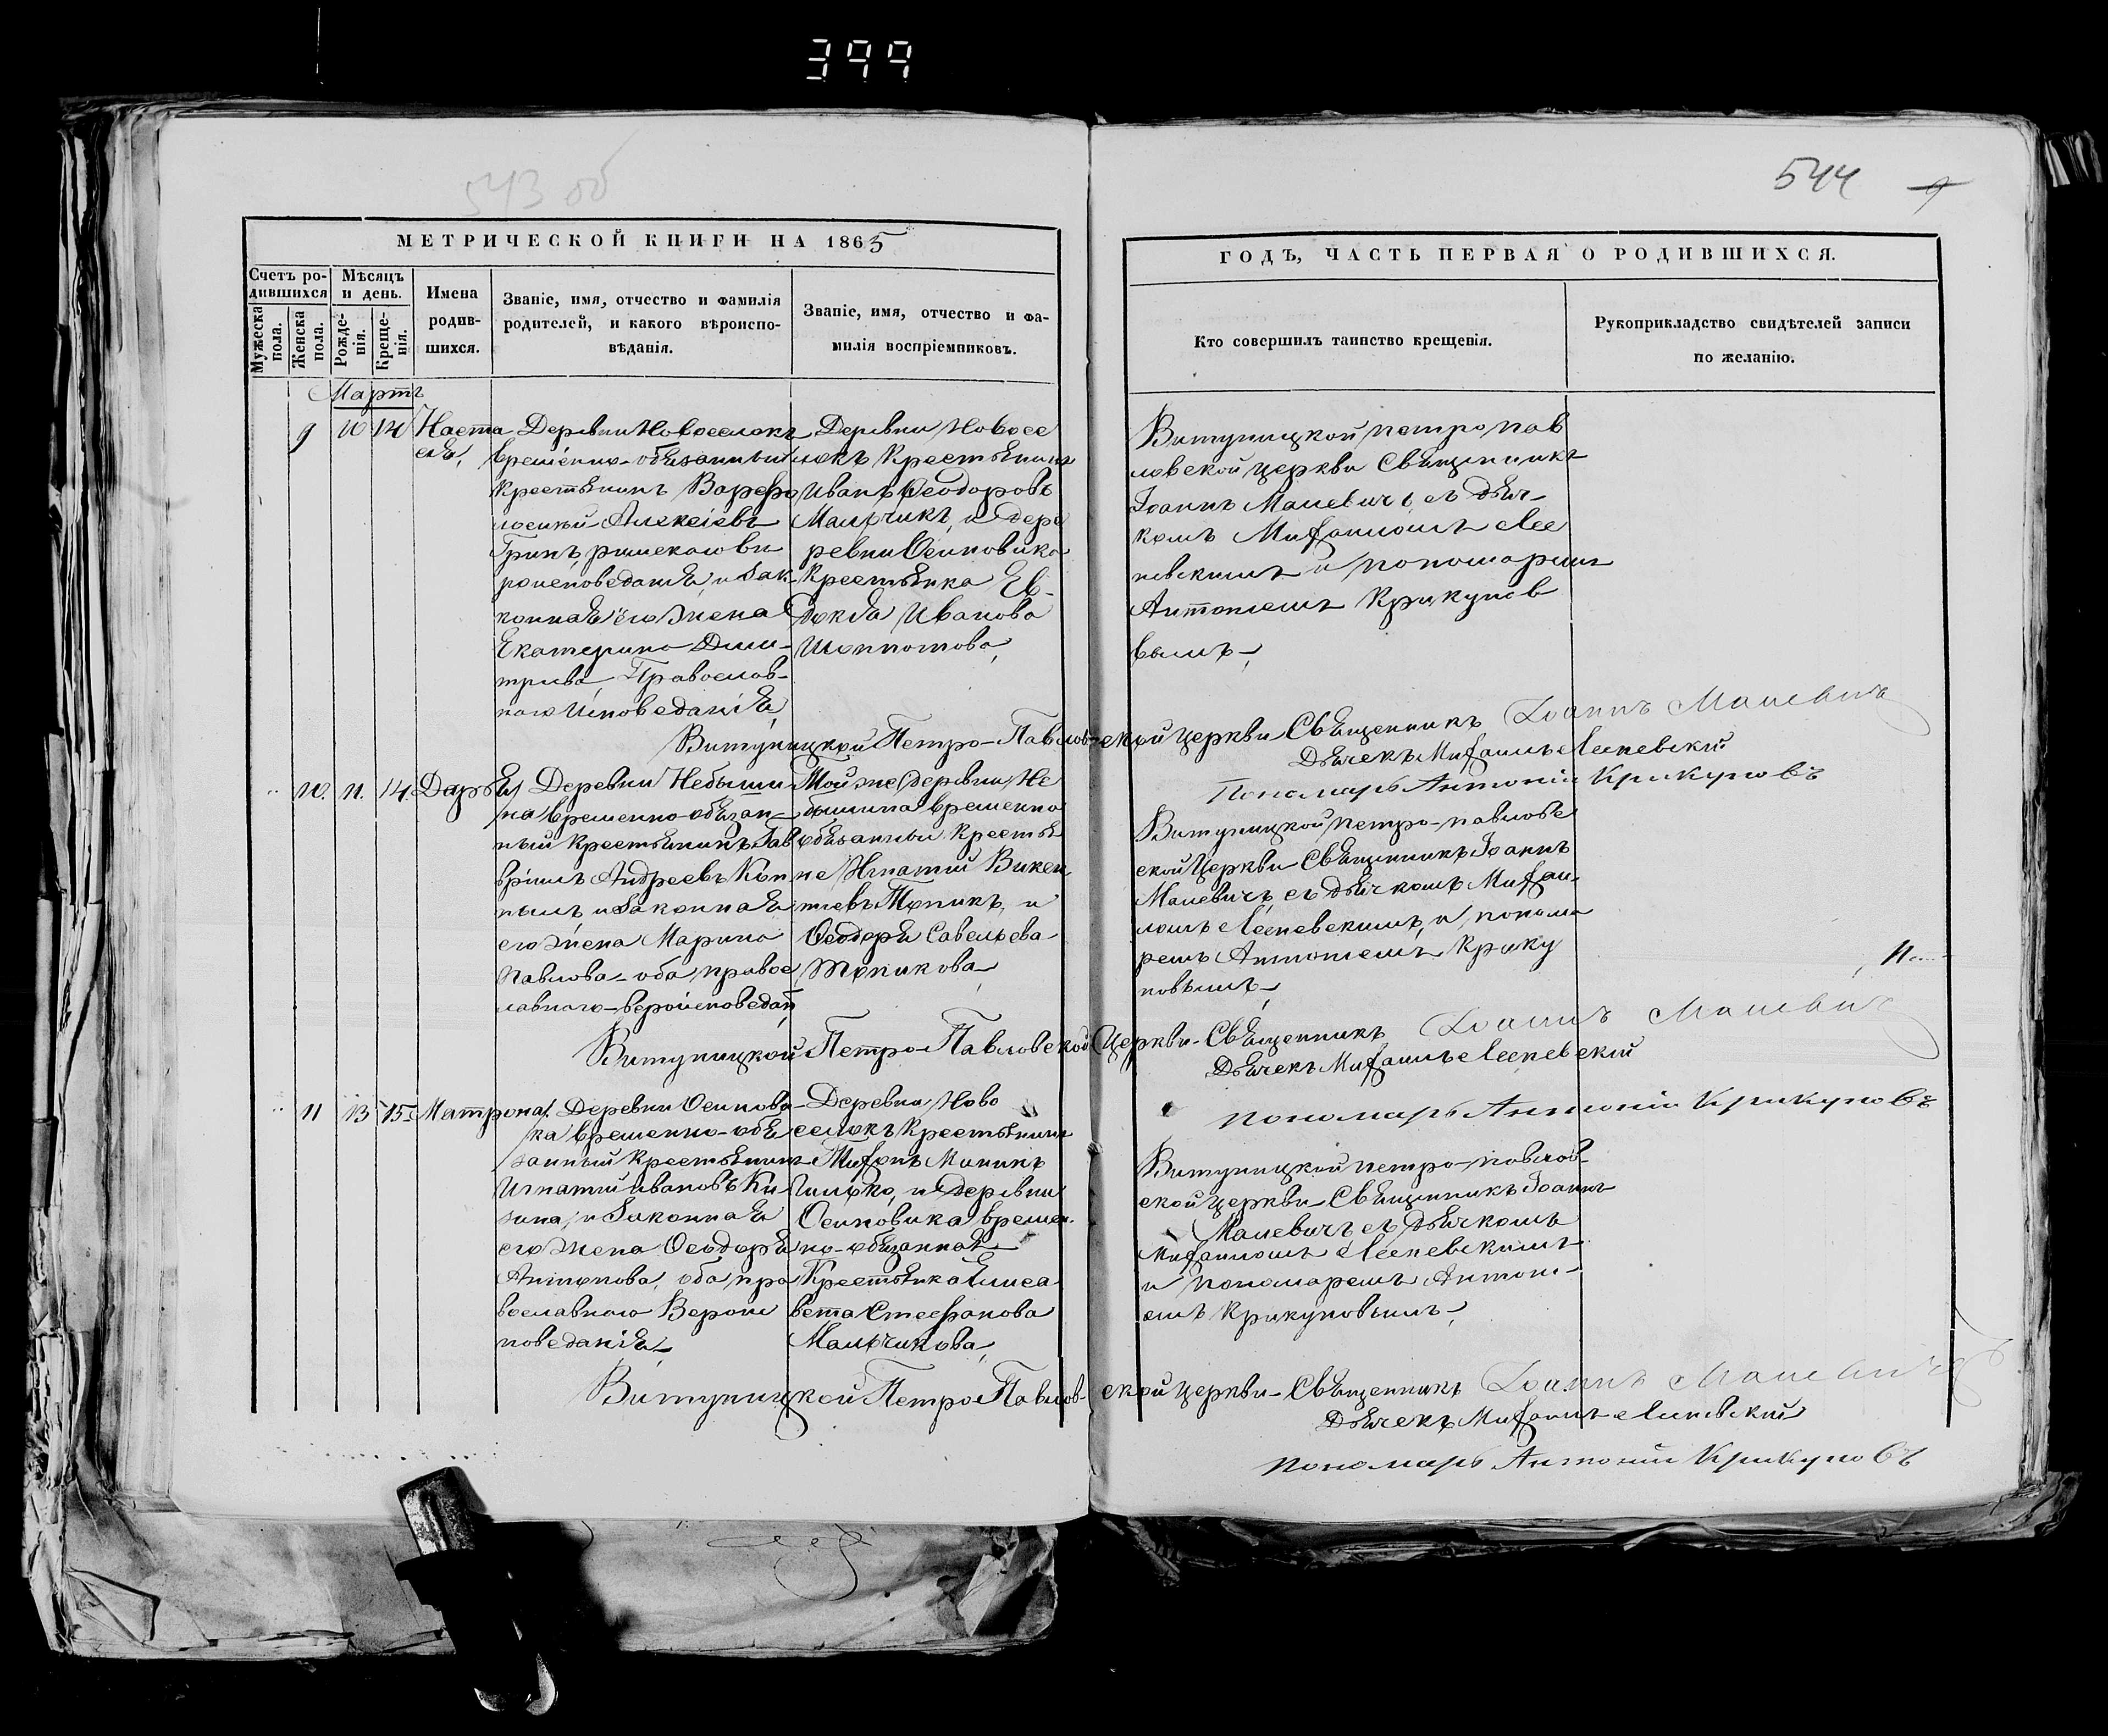 399
543 об
544
МЕТРИЧЕСКОЙ КНИГИ НА 1865
ГОДЪ, ЧАСТЬ ПЕРВАЯ О РОДИВШИХСЯ.
Счетъ ро-
дившихся
Мужеска
пола.
Женска
пола.
Мѣсяцъ
и день.
Рожде-
нія.
Креще-
нія.
Имена
родив-
шихся.
Званіе, имя, отчество и фамилія
родителей, и какого вѣроиспо-
вѣданія.
Званіе, имя, отчество и фа-
милія воспріемниковъ.
Кто совершилъ таинство крещенія.
Рукоприкладство свидѣтелей записи
по желанію.
Мартъ
9 10 14 Наста
сья,
Деревни Новоселокъ
временно-обязанный
Крестьянинъ Варфо
ломей Алексіевъ
Гринъ, римскаго ви
роисповеданія, и Зак-
конная его жена
Екатерина Дми-
триева, Православ-
наго Исповеданія,
Деревни Новосе
локъ Крестьянинъ
Иванъ Ѳеодоровъ
Мальчикъ, и дере
ревни Осиповика
Крестьянка Ев-
докія Иванова
Витуницкой петропав
ловской церкви Священникъ
Іоаннъ Маневичъ, съ дьяч-
комъ Михаиломъ Лес
невскимъ и пономаремъ
Антоніемъ Крикунов
вымъ,
Витуницкой Петро-Павловской церкви Священникъ Іоаннъ Маневичъ
Дьячекъ Михаилъ Лесневский
Пономарь Антоній Крикуновъ
10. 11. 14. Дарья,
Деревни Небыши
на временно-обязан-
ный Крестьянинъ Гав
вріилъ Андреевъ Кон
ныль и законная
его жена Марина
Павлова, оба правос
лавнаго вероисповедан
Той же деревни Не
бышина временно
обязанный Крестья
не Игнатій Викен
тіевъ Топикъ, и
Ѳеодора Савельева
Топикова,
Витуницкой петро-павловс
ской Церкви Священникъ Іоаннъ
Маневичъ, съ дьячкомъ Михаи-
ломъ Лесневскимъ, и понома
ремъ Антоніемъ Крику
новымъ,
Витуницкой Петро-Павловской Церкви Священникъ Іоаннъ Маневичъ
Дьячекъ Михаилъ Лесневскій
Пономарь Антоній Крикуновъ
11 13 15 Матрона,
Деревни Осипови
ка временно-обя
занный Крестьянинъ
Игнатій Ивановъ Ки
зина, и Законная
его жена Ѳеодора
Антонова, оба пра
вославного Вероис
поведанія,
Деревни Ново
селокъ Крестьянинъ
и Деревни
Осиповика времен-
но-обязанная
Крестьянка Елиса
вета Стефанова
Мальчикова,
Витуницкой петро-павлов-
ской церкви Священникъ Іоаннъ
Маневичъ, съ дьячкомъ
Михаиломъ Лесневскимъ
и пономаремъ Антоні-
емъ Крикуновымъ,
Витуницкой Петро Павлов-ской церкви Священникъ Іоаннъ Маневичъ
Дьячекъ Михаилъ Лесневский
Пономарь Антоній Крикуновъ